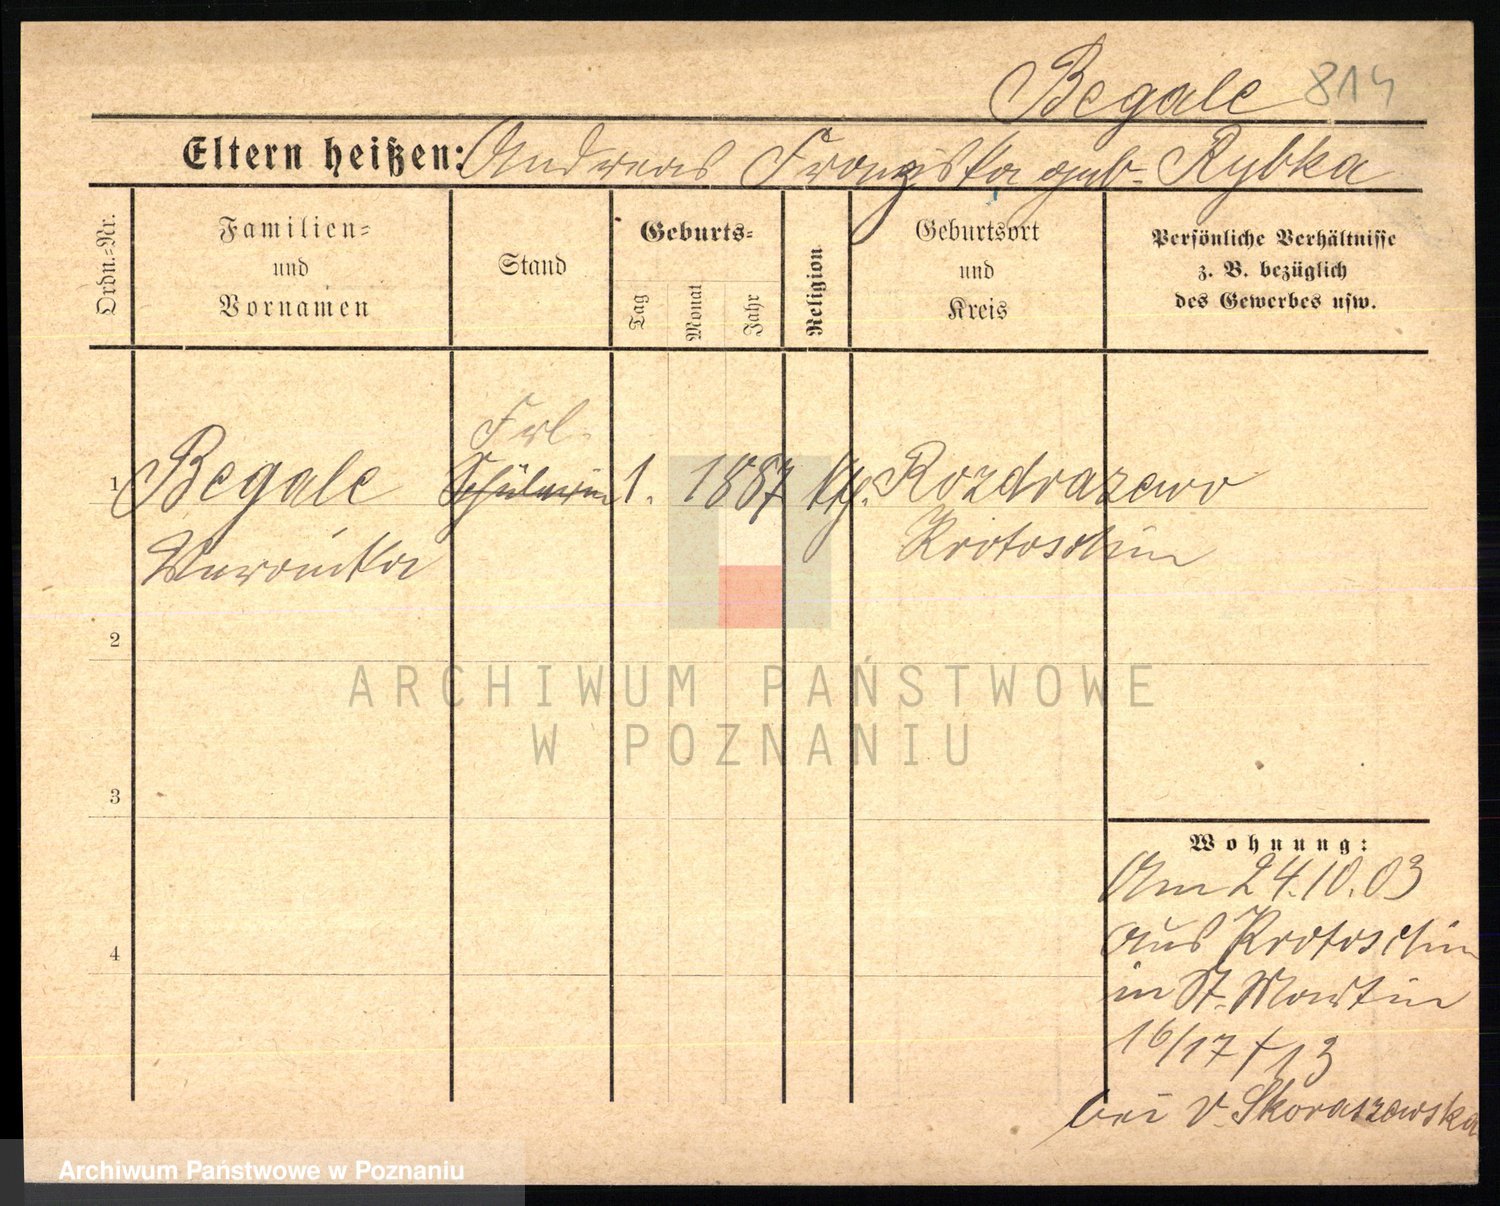 Begale 814
Eltern heißen: Andreas Franziska geb. Rybka
Ordn.-Nr.
Familien-
und
Vornamen
Stand
Geburts-
Tag
Monat
Jahr
Religion
Geburtsort
und
Kreis
Persönliche Verhältnisse
z. B. bezüglich
des Gewerbes usw.
Frl.
1 Begale Schülerin 1. 1887 kth. Rozdrazewo
Veronika Krotoschin
2
3
4
Wohnung:
Am 24.10.03
aus Krotoschin
in St. Martin
16/17 13
bei v. Skoraszewska
ARCHIWUM PAŃSTWOWE
W POZNANIU
Archiwum Państwowe w Poznaniu